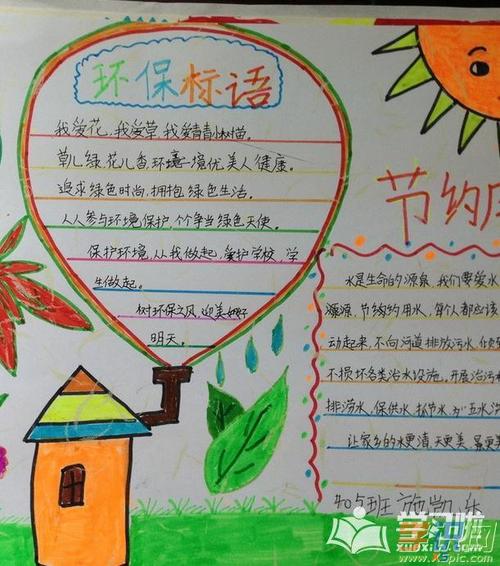 环保标语
我爱花，我爱草，我爱青青小树苗。
草儿绿，花儿香，环境优美人健康。
追求绿色时尚，拥抱绿色生活。
人人参与环境保护，个个争当绿色天使。
保护环境，从我做起，爱护学校，学
生做起。
树环保之风，迎美好
明天。
节约用
水是生命的源泉，我们要爱水
源，节约用水，每个人都应该
动起来，不向河道排放污水，
不损坏各类治水设施，开展治污
排涝水、保供水、抓节水，为"五水
让家乡的水更清，天更美，景更
405班
学习啦
xuexila.com
www.xspic.com